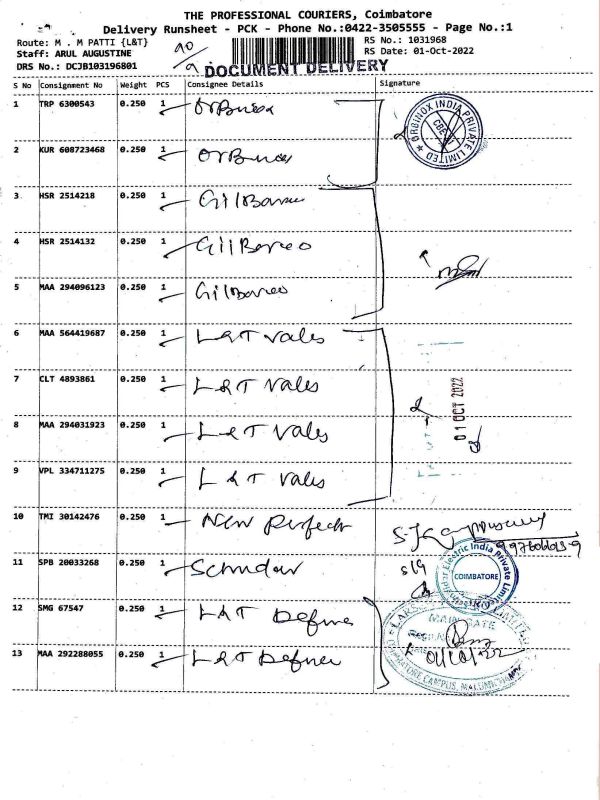 THE PROFESSIONAL COURIERS, Coimbatore
Delivery Runsheet - PCK - Phone No.:0422-3505555 - Page No.:1
Route: M . M PATTI {L&T}
RS No.: 1031968
Staff: ARUL AUGUSTINE
RS Date: 01-Oct-2022
DRS No.: DCJB103196801
DOCUMENT DELIVERY
S No Consignment No Weight PCS Consignee Details Signature
1 TRP 6300543 0.250 1 OrBinox
ORBINOX INDIA PRIVATE LIMITED
2 KUR 608723468 0.250 1 OrBinox
3 HSR 2514218 0.250 1 GilBarco
4 HSR 2514132 0.250 1 GilBarco
5 MAA 294096123 0.250 1 GilBarco
6 MAA 564419687 0.250 1 L&T Vales
7 CLT 4893861 0.250 1 L&T Vales
01 OCT 2022
8 MAA 294031923 0.250 1 L&T Vales
9 VPL 334711275 0.250 1 L&T Vales
10 TMI 30142476 0.250 1 New Perfect
11 SPB 20033268 0.250 1
Electric India Private Limited
COIMBATORE
12 SMG 67547 0.250 1 L&T Defince
MAIN GATE
13 MAA 292288055 0.250 1 L&T Defince
01/10/22
COIMBATORE CAMPUS,